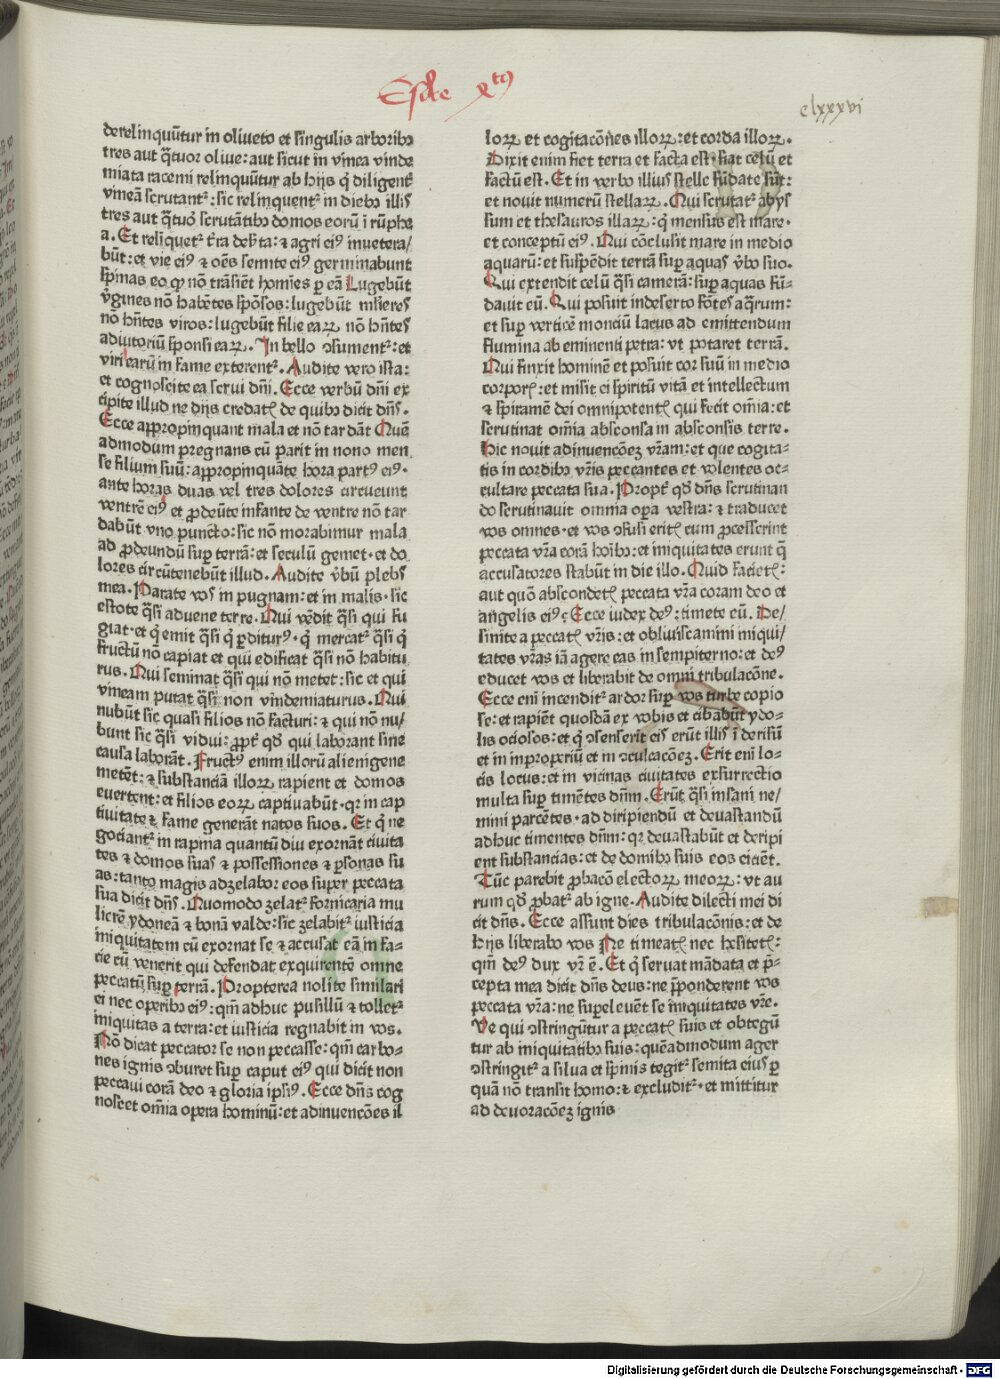 Esdre
clxxxvi
derelinquūtur in oliueto et singulis arboribꝰ
tres aut q̄tuor oliue: aut sicut in vinea vinde
miata racemi relinquūtur ab hijs q̄ diligent᷑
vineā scrutant᷑: sic relinquent᷑ in diebꝰ illis
tres aut q̄tuor scrutātibꝰ domos eorū ī rūphe
a. Et relīquet᷑ t̄ra deẜta: ⁊ agri eiꝰ inuetera/
būt: et vie eiꝰ ⁊ oēs semite eiꝰ germinabunt
spinas eo ꝙ nō trāsient homīes ꝑ eā Lugebūt
v̄gines nō habētes spōsos: lugebūt mlieres
nō hn̄tes viros: lugebūt filie eaꝝ nō hn̄tes
adiutoriū sponsi eaꝝ. In bello ꝯsument᷑: et
viri earū in fame exterent᷑. Audite vero ista:
et cognoscite ea serui dn̄i. Ecce verbū dn̄i ex
cipite illud ne dijs credatꝭ de quibꝰ dicit dn̄s.
Ecce appropinquant mala et nō tardāt Quē
admodum pregnans cū parit in nono men
se filium suū: appropinquāte hora partꝰ eiꝰ.
ante horas duas vel tres dolores circueunt
ventrē eiꝰ et ꝓdeūte infante de ventre nō tar
dabūt vno puncto: sic nō morabimur mala
ad ꝓdeundū suꝑ terrā: et seculū gemet. et do
lores circūtenebūt illud. Audite v̄bū plebs
mea. Parate vos in pugnam: et in malis. sic
estote q̄si aduene terre. Qui vēdit q̄si qui fu
giat. et q̄ emit q̄si q̄ ꝑditurꝰ. q̄ mercat᷑ q̄si q̄
fructū nō capiat et qui edificat q̄si nō habitu
rus. Qui seminat q̄si qui nō metet: sic et qui
vineam putat q̄si non vindemiaturus. Qui
nubūt sic quasi filios nō facturi: ⁊ qui nō nu/
bunt sic q̄si vidui: ꝓpt᷑ qd̄ qui laborant sine
causa laborāt. Fructꝰ enim illorū alienigene
metēt: ⁊ substanciā illoꝝ rapient et domos
euertent: et filios eoꝝ captiuabūt. qr in cap
tiuitate ⁊ fame generāt natos suos. Et q̄ ne
gociant᷑ in rapina quantū diu exornāt ciuita
tes ⁊ domos suas ⁊ possessiones ⁊ ꝑsonas su
as: tanto magis adzelabor eos super peccata
sua dicit dn̄s. Quomodo zelat᷑ fornicaria mu
lierē ydoneā ⁊ bonā valde: sic zelabit᷑ iusticia
iniquitatem cū exornat se ⁊ accusat eā in fa-
cie cū venerit qui defendat exquirentē omne
peccatū suꝑ terrā. Propterea nolite similari
ei nec operibꝰ eiꝰ: qm̄ adhuc pusillū ⁊ tollet᷑
iniquitas a terra: et iusticia regnabit in vos.
Nō dicat peccator se non peccasse: qm̄ carbo-
nes ignis ꝯburet suꝑ caput eiꝰ qui dicit non
peccaui corā deo ⁊ gloria ipsiꝰ. Ecce dn̄s cog
noscet om̄ia opera hominū: et adinuencōes il
loꝝ et cogitacōnes illoꝝ: et corda illoꝝ.
Dixit enim fiet terra et facta est: fiat celū et
factū est. Et in verbo illius stelle fūdate sūt:
et nouit numerū stellaꝝ. Qui scrutat᷑ abys
sum et thesauros illaꝝ: q̄ mensus est mare.
et conceptū eiꝰ. Qui cōclusit mare in medio
aquarū: et suspēdit terrā suꝑ aquas v̄bo suo.
Qui extendit celū q̄si camerā: suꝑ aquas fū-
dauit eū. Qui posuit in deserto fōtes aq̄rum:
et suꝑ verticē monciū lacus ad emittendum
flumina ab eminenti petra: vt potaret terrā.
Qui finxit hominē et posuit cor suū in medio
corporꝭ: et misit ei spiritū vitā et intellectum
⁊ spiramē dei omnipotentꝭ qui fecit om̄ia: et
scrutinat om̄ia absconsa in absconsis terre.
Hic nouit adinuencōez vr̄am: et que cogita-
tis in cordibꝰ vr̄is peccantes et volentes oc-
cultare peccata sua. Propt᷑ qd̄ dn̄s scrutinan
do scrutinauit omnia oꝑa vestra: ⁊ traducet
vos omnes. et vos ꝯfusi eritꝭ cum ꝓcesserint
peccata vr̄a corā hoībꝰ: et iniquitates erunt q̄
accusatores stabūt in die illo. Quid facietꝭ:
aut quō abscondetꝭ peccata vr̄a coram deo et
angelis eiꝰ: Ecce iudex deꝰ: timete eū. De/
sinite a peccatꝭ vr̄is: et obliuiscamini iniqui/
tates vr̄as iā agere eas in sempiterno: et deꝰ
educet vos et liberabit de omni tribulacōne.
Ecce eni incendit᷑ ardor suꝑ vos turbe copio
se: et rapient quosdā ex vobis et cibabūt ydo-
lis ociosos: et q̄ ꝯsenserit eis erūt illis ī derisū
et in inproperiū et in ꝯculcacōez. Erit eni lo-
cis locus: et in vicinas ciuitates exsurrectio
multa suꝑ timētes dn̄m. Erūt q̄si insani ne/
mini parcētes. ad diripiendū et deuastandū
adhuc timentes dn̄m: qr deuastabūt et deripi
ent substancias: et de domibꝰ suis eos eicient.
Tūc parebit ꝓbacō electoꝝ meoꝝ: vt au
rum qd̄ ꝓbat᷑ ab igne. Audite dilecti mei di
cit dn̄s. Ecce assunt dies tribulacōnis: et de
hijs liberabo vos Ne timeatꝭ nec hesitetꝭ:
qm̄ deꝰ dux vr̄ ē. Et q̄ seruat mādata et p̄-
cepta mea dicit dn̄s deus: ne p̄ponderent vos
peccata vr̄a: ne suꝑeleuēt se īniquitates vr̄e.
Ve qui ꝯstringūtur a peccatꝭ suis et obtegū
tur ab iniquitatibꝰ suis: quēadmodum ager
ꝯstringit᷑ a silua et spinis tegit᷑ semita eius ꝑ
quā nō transit homo: ⁊ excludit᷑. et mittitur
ad deuoracōez ignis
Digitalisierung gefördert durch die Deutsche Forschungsgemeinschaft - DFG